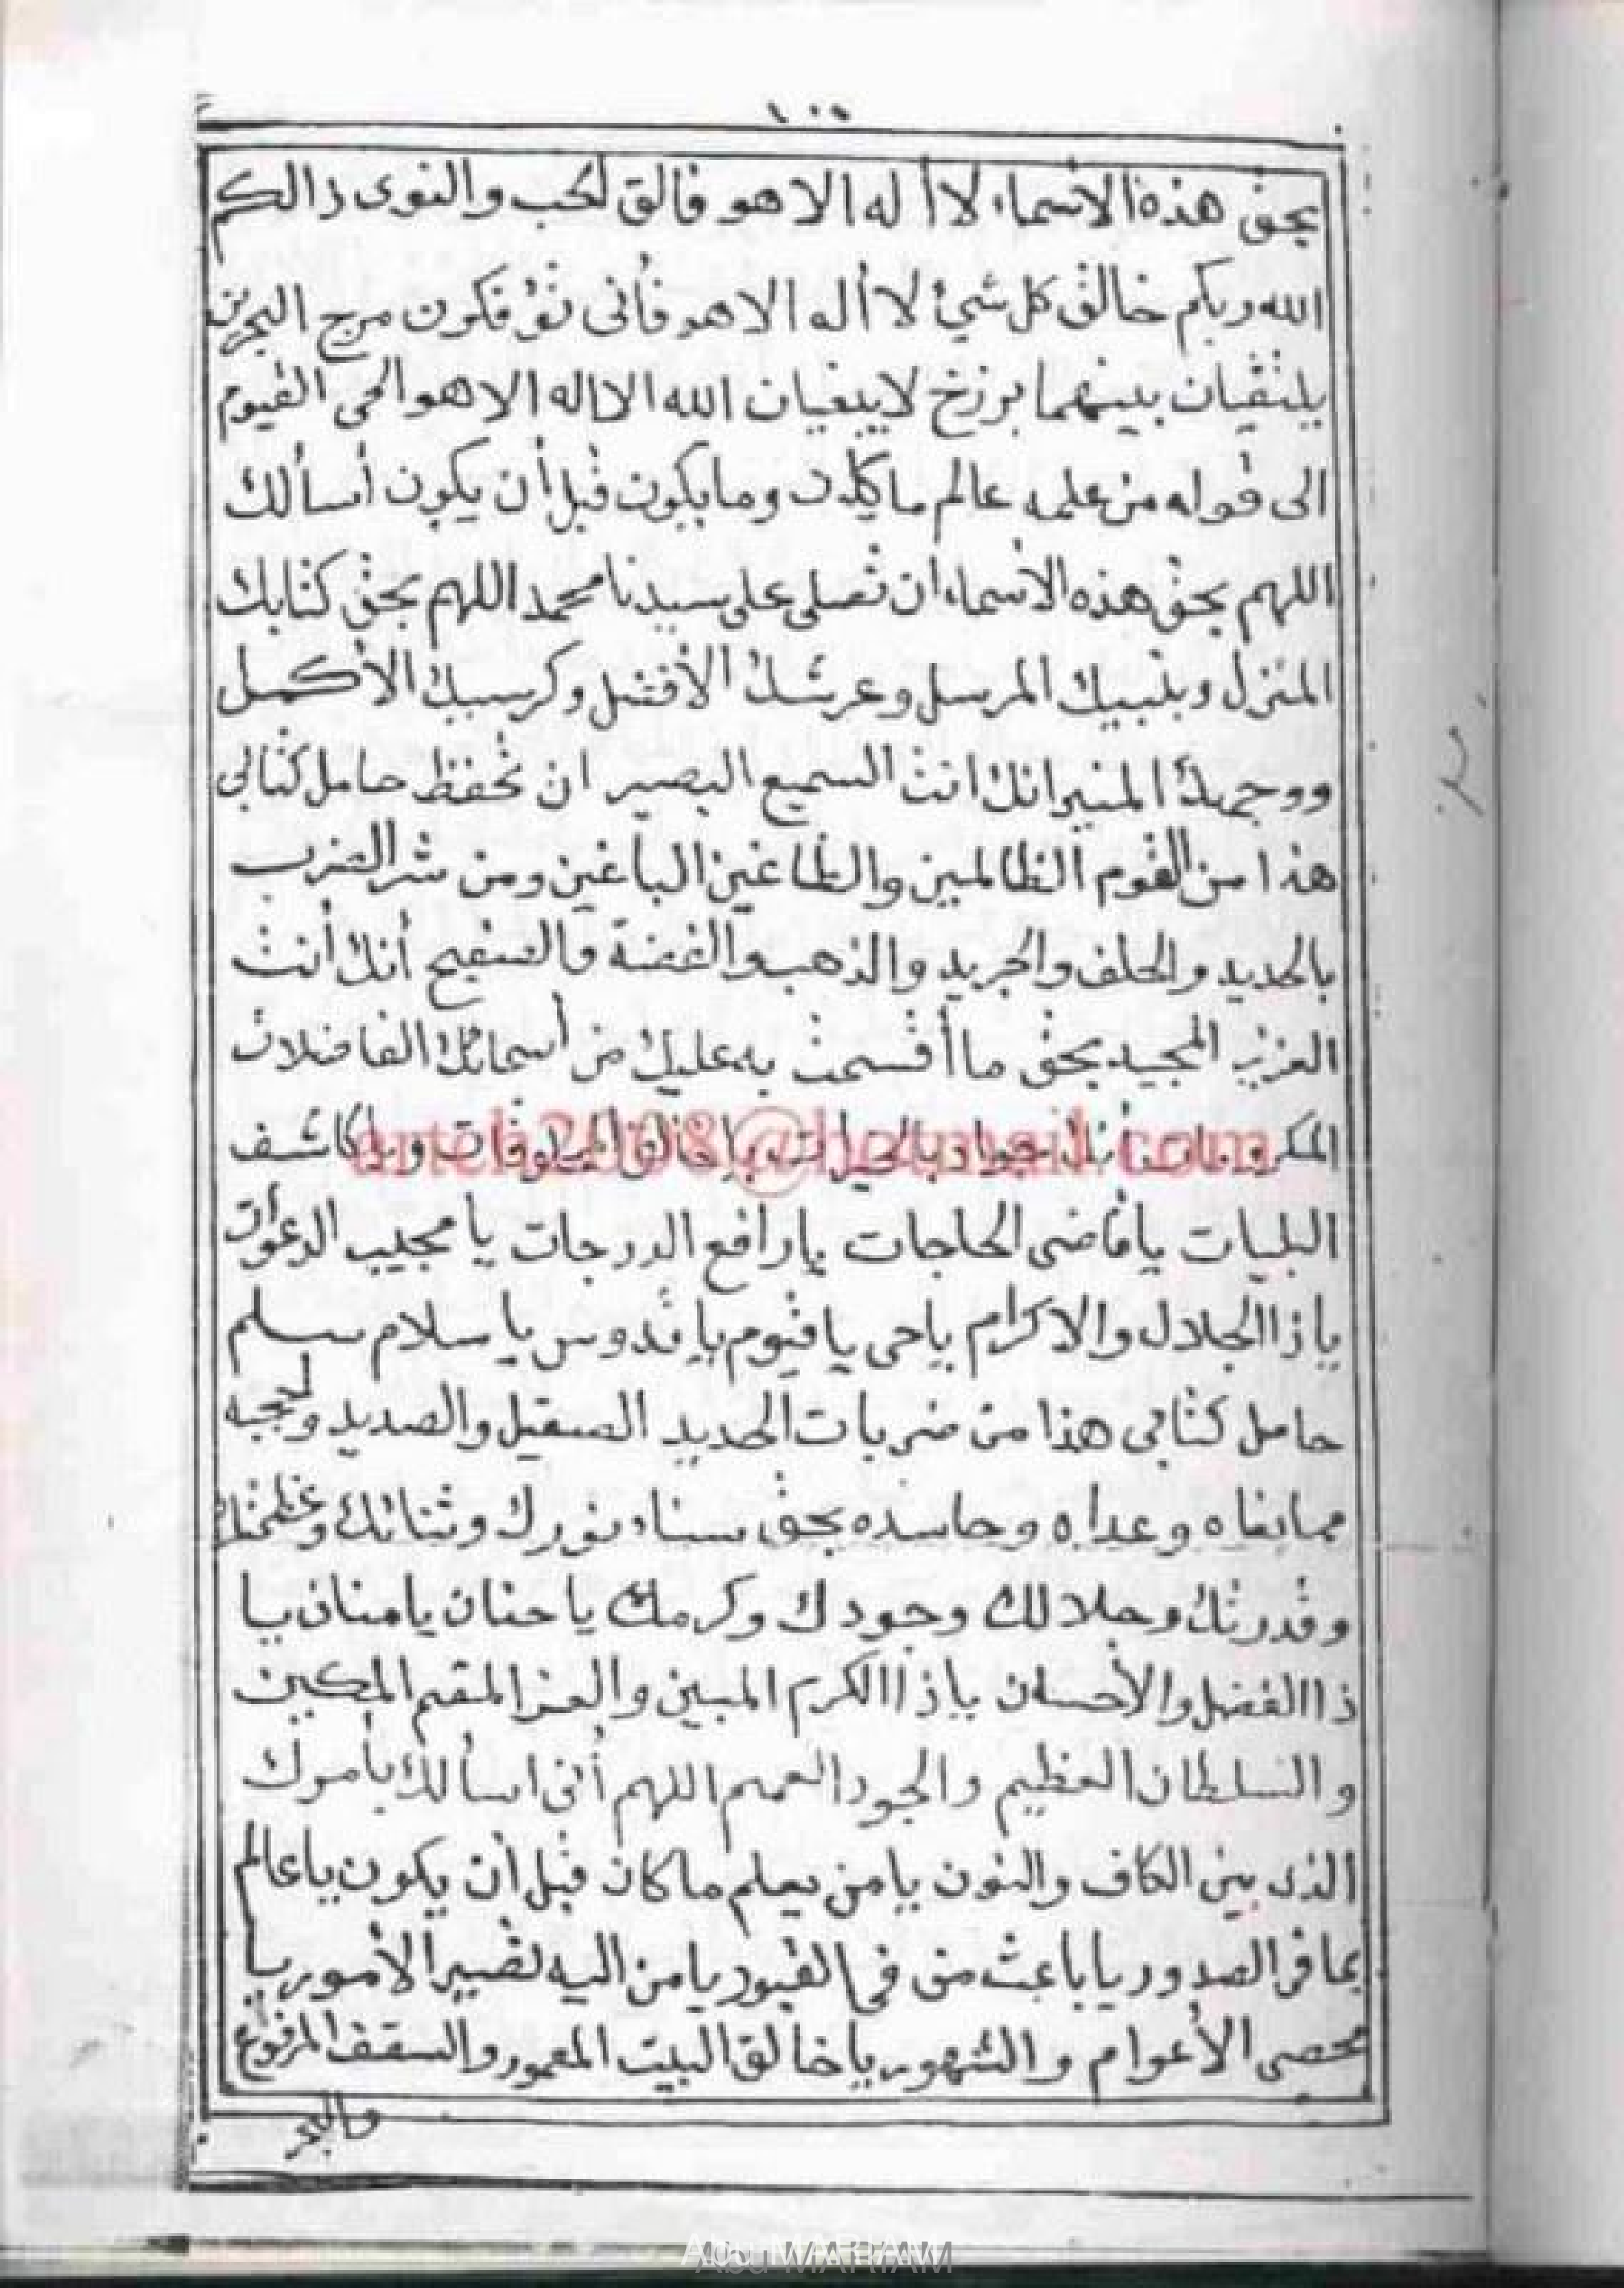 ١٠٠
بحق هذه الاسماء لا أله الا هو فالق لحب والنوى ذالكم
الله ربكم خالق كل شيئ لا أله الا هو فأنى تؤفكون مرج البحرين
يلتقيان بينهما برزخ لا يبغيان الله الا اله الا هو الحي القيوم
الى قوله من علمه عالم ما وما يكون قبل أن يكون أسألك
اللهم بحق هذه الأسماء ان تصلى على سيدنا محمد اللهم بحق كتابك
المنزل وبنبيك المرسل وعرشك الأفضل وكرسيك الأكمل
ووجهك المنير انك انت السميع البصير ان تحفظ حامل كتابى
هذا من القوم الظالمين والطاغين الباغين ومن شر الضرب
بالحديد والحلف والجريد والذهب والفضة فالصفيح أنك أنت
العزيز المجيد بحق ما أقسمت به عليك من أسمائك الفاضلات
المكرومات أنك جواد بالخيرات يا خالق المخلوقات ويا كاشف
antch2008@hotmail.com
البليات يا قاضى الحاجات يا رافع الدرجات يا مجيب الدعوات
يا ذا الجلال والاكرام يا حى يا قيوم يا قدوس يا سلام سلم
حامل كتابى هذا من ضربات الحديد الصقيل والصديد
مما يخاه وعداه وحاسده بحق سناء نورك وثنائك وعظمتك
وقدرتك وجلالك وجودك وكرمك يا حنان يا منان يا
ذا الفضل والأحسان يا ذا الكرم المبين والعز المقيم المكين
والسلطان العظيم والجود العميم اللهم أنى اسألك بأمرك
الذى بين الكاف والنون يا من يعلم ما كان قبل أن يكون يا عالم
بما فى الصدور يا باعث من فى القبور يا من اليه تصير الأمور يا
محصى الأعوام والشهور يا خالق البيت المعمور والسقف المرفوع
والبحر
Abu MARIAM